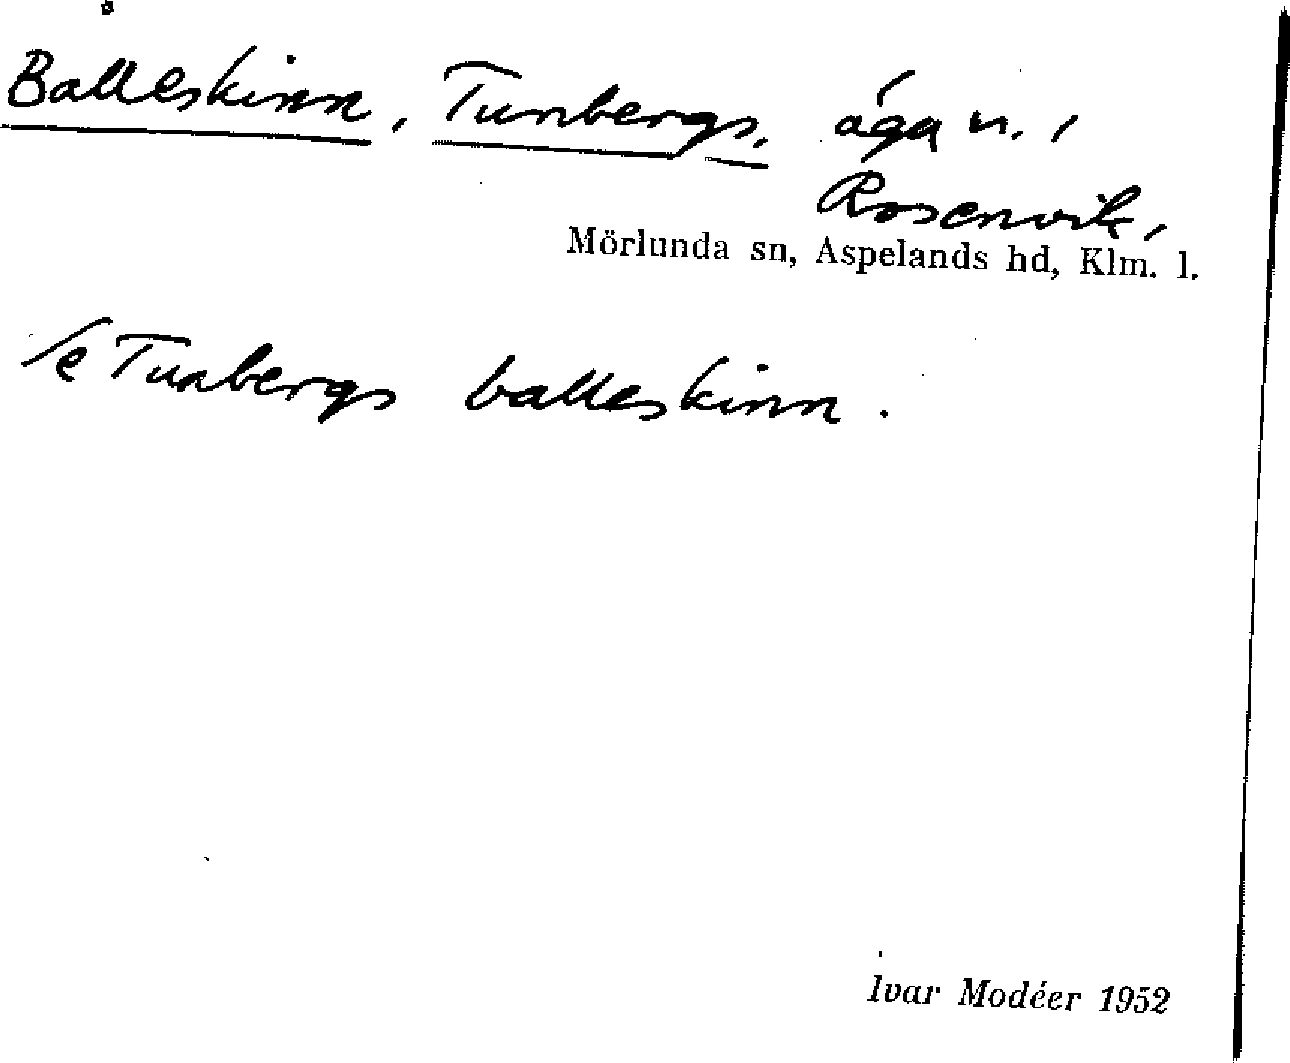 Balleskinn, Tunbergs, ägan. i
Rosenvik,
Mörlunda sn, Aspelands hd, Klm. l.
Se Tunbergs balleskinn.
Ivar Modéer 1952